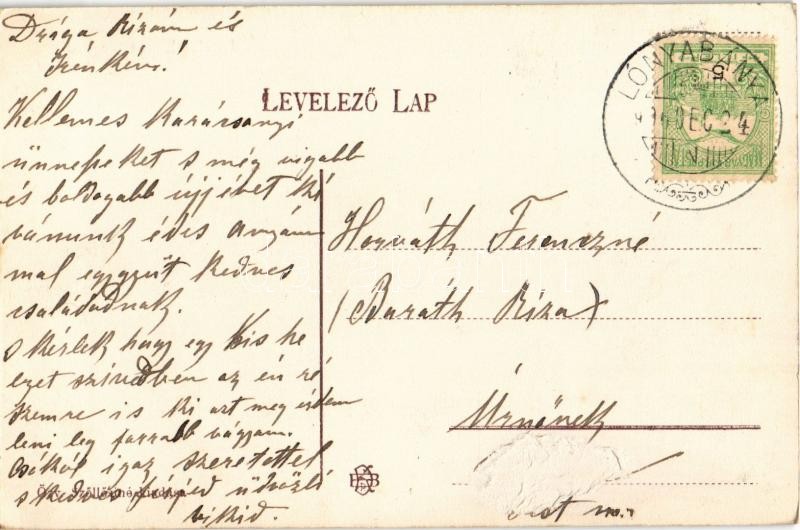 Drága Rizám és
Irénkém!
Kellemes Karácsonyi
ünnepeket s még vigabb
és boldogabb újjévet ki
vánunk édes anyám
mal eggyütt kedves
családodnak.
s kérlek hagy egy kis he
lyzet szivedben az én ré
szemre is ki azt meg érdem
leni leg forrobb vágyam.
Csókol igaz szeretettel
s kedves üdvözli
LEVELEZŐ LAP
LÓNYABÁNYA
914 DEC 24
Horváth Ferenczné
(Baráth Riza)
Úrnőnek